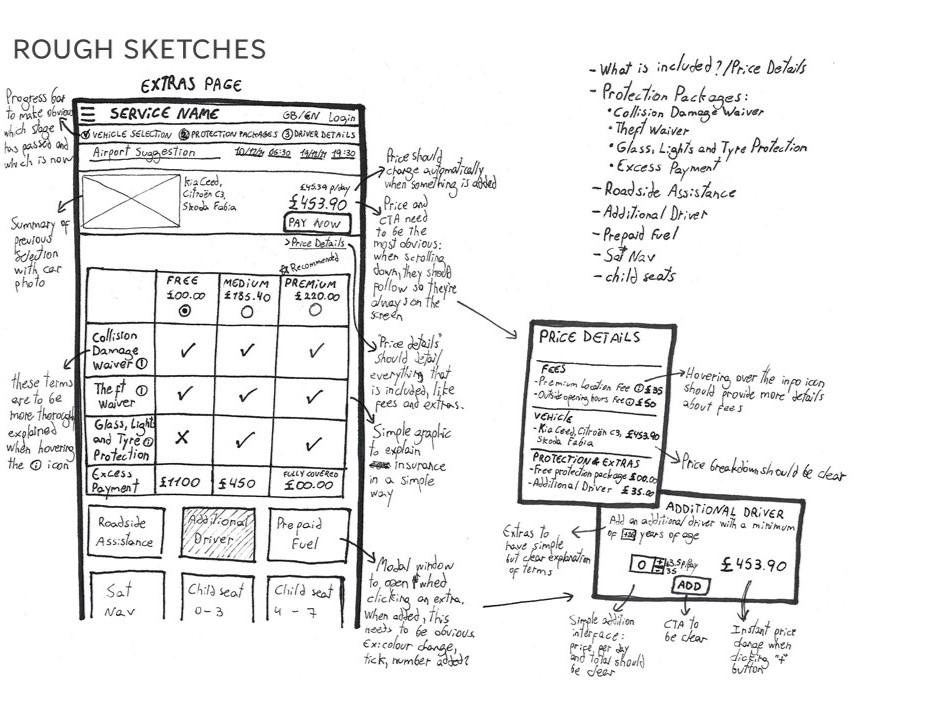 ROUGH SKETCHES
EXTRAS PAGE
Progress bar
to make obvious
which stage
has passed and
which is now
SERVICE NAME GB/EN Login
VEHICLE SELECTION 2 PROTECTION PACKAGES 3 DRIVER DETAILS
Airport Suggestion 19:30
Kia Ceed,
Citroën C3,
Skoda Fabia
£45.39 p/day
£453.90
PAY NOW
>Price Details
Summary of
previous
selection
with car
photo
Recommended
FREE MEDIUM PREMIUM
£00.00 £185.40 £220.00
Collision
Damage
Waiver i
Theft i
Waiver
Glass, Light
and Tyre i
Protection
Excess
Payment
£1100 £450
FULLY COVERED
£00.00
these terms
are to be
more thorough
explained
when hovering
the i icon
Roadside
Assistance
Additional
Driver
Prepaid
Fuel
Sat
Nav
Child seat
0-3
Child seat
4-7
Price should
change automatically
when something is added
Price and
CTA need
to be the
most obvious:
when scrolling
down, they should
follow so they're
always on the
screen
"Price details"
should detail
everything that
is included, like
fees and extras.
Simple graphic
to explain
insurance
in a simple
way
Modal window
to open when
clicking an extra.
When added, this
needs to be obvious.
Ex: colour change,
tick, number added?
- What is included?/Price Details
- Protection Packages:
• Collision Damage Waiver
• Theft Waiver
• Glass, Lights and Tyre Protection
• Excess Payment
- Roadside Assistance
- Additional Driver
- Prepaid Fuel
- Sat Nav
- child seats
PRICE DETAILS
FEES
- Premium Location Fee i £35
- Outside opening hours Fee i £50
VEHICLE
- Kia Ceed, Citroën C3, £453.90
Skoda Fabia
PROTECTION & EXTRAS
- Free protection package £00.00
- Additional Driver £35.00
Hovering over the info icon
should provide more details
about fees
Price breakdown should be clear
ADDITIONAL DRIVER
Add an additional driver with a minimum
of years of age
0 + - £3.5 p/day
35
£453.90
ADD
Extras to
have simple
but clear explanation
of terms
Simple addition
interface:
price, per day
and total should
be clear
CTA to
be clear
Instant price
change when
clicking "+"
button